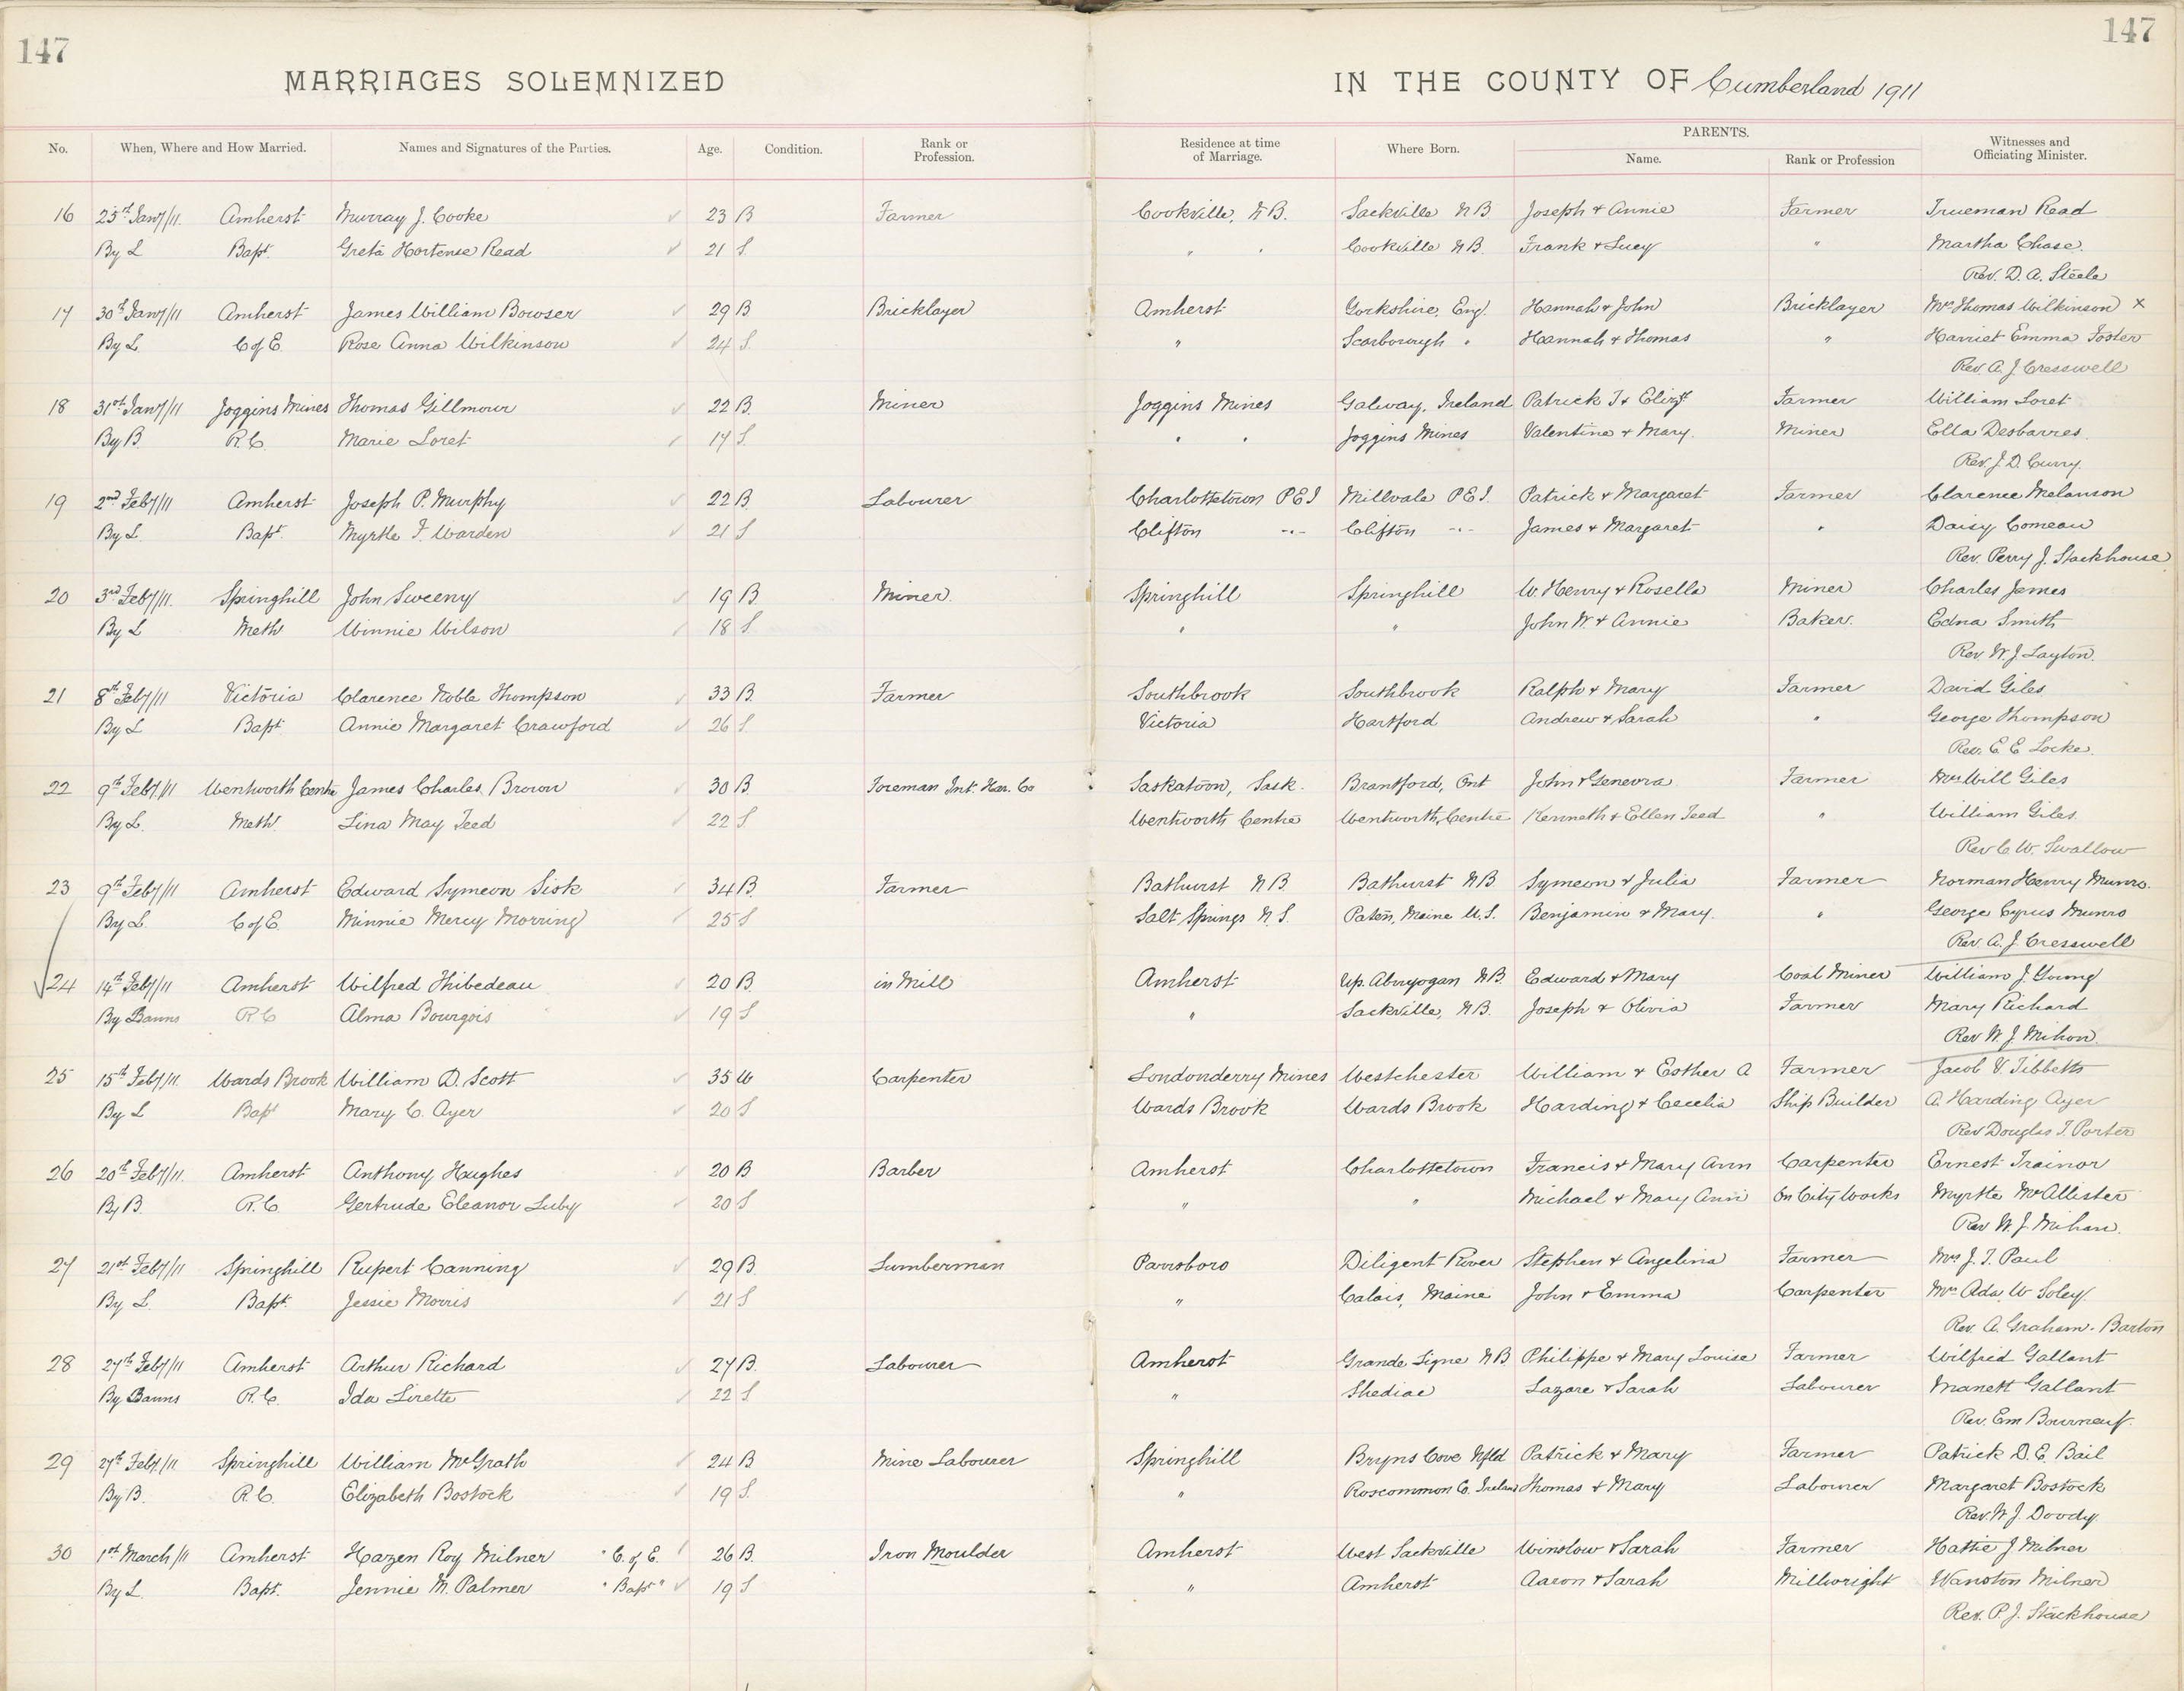 147
147
MARRIAGES SOLEMNIZED IN THE COUNTY OF Cumberland 1911
No. When, Where and How Married. Names and Signatures of the Parties. Age. Condition. Rank or Profession. Residence at time of Marriage. Where Born. PARENTS. Name. Rank or Profession Witnesses and Officiating Minister.
16 25th Jany/11. Amherst Murray J. Cooke 23 B Farmer Cookville, N.B. Sackville N B. Joseph & Annie Farmer Trueman Read
By L Bapt. Greta Hortense Read 21 S. " " Cookville N B. Frank & Lucy " Martha Chase.
Rev. D. A. Steele
17 30th Jany/11 Amherst James William Bowser 29 B Bricklayer Amherst Yorkshire, Eng. Hannah & John Bricklayer Mrs Thomas Wilkinson X
By L. C of E. Rose Anna Wilkinson 24 S. " Scarborough " Hannah & Thomas " Harriet Emma Foster
Rev A. J. Cresswell
18 31st Jany/11 Joggins Mines Thomas Gillmour 22 B. Miner Joggins Mines Galway, Ireland Patrick J & Elizth Farmer William Loret
By B. R. C. Marie Loret 17 S. " " Joggins Mines Valentine & Mary. Miner Ella Desbarres.
Rev. J. D. Curry.
19 2nd Feby/11 Amherst Joseph P. Murphy 22 B. Labourer Charlottetown P E I Millvale P E I. Patrick & Margaret Farmer Clarence Melanson
By L. Bapt. Myrtle F. Warden 21 S Clifton -"- Clifton -"- James & Margaret " Daisy Comeau
Rev. Perry J. Stackhouse
20 3rd Feby/11. Springhill John Sweeny 19 B. Miner. Springhill Springhill W. Henry & Rosella Miner Charles James
By L Meth Winnie Wilson 18 S. " " John W. & Annie Baker. Edna Smith
Rev. W. J. Layton.
21 8th Feby/11 Victoria Clarence Noble Thompson 33 B. Farmer Southbrook Southbrook Ralph & Mary Farmer David Giles
By L Bapt. Annie Margaret Crawford 26 S. Victoria Hartford Andrew & Sarah " George Thompson
Rev. E E Locke.
22 9th Feby/11 Wentworth Centre James Charles. Brown 30 B. Foreman Int. Har. Co Saskatoon, Sask. Brantford, Ont John & Genevra Farmer Mrs Will Giles
By L. Meth. Lina May Teed 22 S. Wentworth Centre Wentworth, Centre Kenneth & Ellen Teed " William Giles.
Rev C. W. Swallow
23 9th Feby/11 Amherst Edward Symeon Sisk 34 B. Farmer Bathurst N B. Bathurst N B. Symeon & Julia Farmer Norman Henry Munro.
By L. C of E. Minnie Mercy Morring 25 S Salt Springs N. S. Maine U. S. Benjamin & Mary. " George Cyrus Munro
Rev. A. J. Cresswell
24 14th Feby/11 Amherst Wilfred Thibedeau 20 B. in Mill Amherst Up. N B. Edward & Mary Coal Miner William J. Young
By Banns R C Alma Bourgois 19 S " Sackville, N B. Joseph & Olivia Farmer Mary Richard
Rev W. J. Mihon.
25 15th Feby/11. Wards Brook William D. Scott 35 W Carpenter Londonderry Mines Westchester William & Esther A Farmer Jacob V. Tibbetts
By L Bapt Mary C. Ayer 20 S Wards Brook Wards Brook Harding & Cecelia Ship Builder A. Harding Ayer
Rev Douglas J. Porter
26 20th Feby/11. Amherst Anthony Hughes 20 B Barber Amherst Charlottetown Francis & Mary Ann Carpenter Ernest Trainor
By B. R. C. Gertrude Eleanor Luby 20 S " " Michael & Mary Ann On City Works Myrtle McAllister
Rev W. J. Mihan.
27 21st Feby/11 Springhill Rupert Canning 29 B. Lumberman Parrsboro Diligent River Stephen & Angelina Farmer Mrs J. T. Paul
By L. Bapt. Jessie Morris 21 S " Calais, Maine John & Emma Carpenter Mrs Ada W Soley
Rev. A. Graham-Barton
28 27th Feby/11 Amherst Arthur Richard 27 B. Labourer Amherst Grande Ligne N B. Philippe & Mary Louise Farmer Wilfrid Gallant
By Banns R. C. Ida Lirette 22 S. " Shediac Lazare & Sarah Labourer Manett Gallant
Rev. Em Bourneuf.
29 27th Feby/11 Springhill William McGrath 24 B Mine Labourer Springhill Bryns Cove Nfld Patrick & Mary Farmer Patrick D. E. Bail
By B. R C. Elizabeth Bostock 19 S. " Roscommon Co. Ireland Thomas & Mary Labourer Margaret Bostock
Rev. W. J. Doody
30 1st March/11 Amherst Hazen Roy Milner "C. of E. 26 B. Iron Moulder Amherst West Sackville Winslow & Sarah Farmer Hattie J. Milner
By L. Bapt. Jennie M. Palmer "Bapt" 19 S " Amherst Aaron & Sarah Millwright Wanston Milner
Rev. P. J. Stackhouse